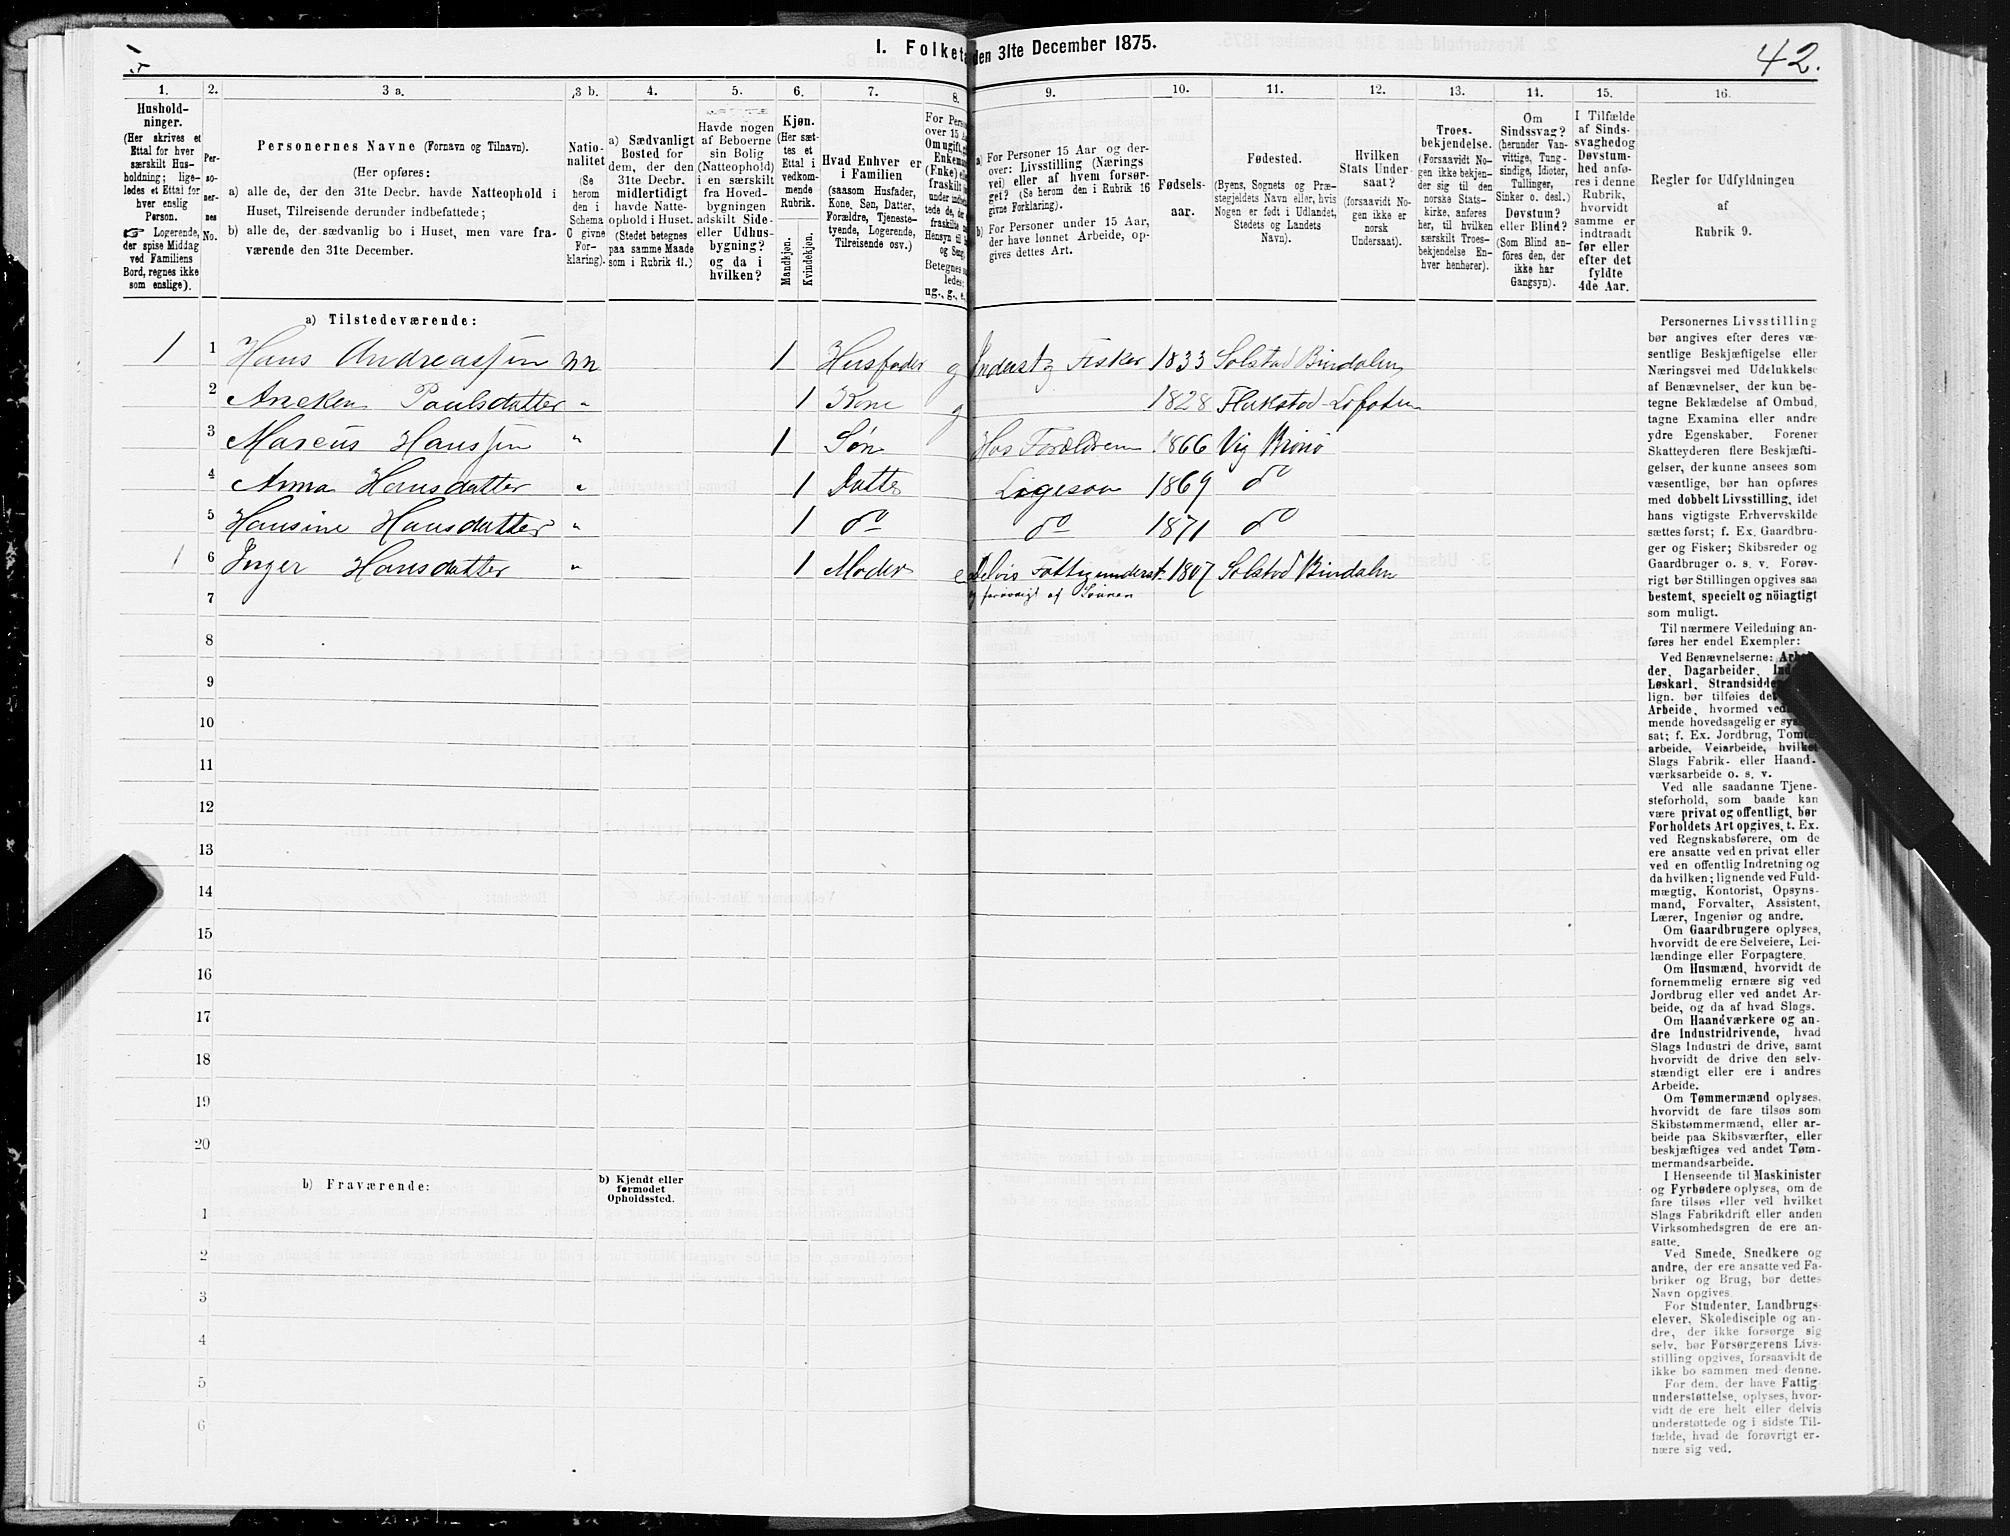 I. Folket den 31te December 1875.
42.
1.
Hushold-
ninger.
(Her skrives et
Ettal for hver
særskilt Hus-
holdning; lige-
ledes et Ettal for
hver enslig
Person.
☞ Logerende,
der spise Middag
ved Familiens
Bord, regnes ikke
som enslige).
2.
Per-
so-
ner-
nes
No.
3 a.
Personernes Navne (Fornavn og Tilnavn).
(Her opføres:
a) alle de, der den 31te Decbr. havde Natteophold i
Huset, Tilreisende derunder indbefattede;
b) alle de, der sædvanlig bo i Huset, men vare fra-
værende den 31te December.
3 b.
Natio-
nalitet
(Se
herom
den i
Schema
C givne
For-
klaring).
4.
a) Sædvanligt
Bosted for
dem, der den
31te Decbr.
midlertidigt
havde Natte-
ophold i Huset.
(Stedet betegnes
paa samme Maade
som i Rubrik 11.)
5.
Havde nogen
af Beboerne
sin Bolig
(Natteophold)
i en særskilt
fra Hoved-
bygningen
adskilt Side-
eller Udhus-
bygning?
og da i
hvilken?
6.
Kjøn.
(Her sæt-
tes et
Ettal i
vedkom-
mende
Rubrik.
Mandkjøn.
Kvindekjøn.
7.
Hvad Enhver er
i Familien
(saasom Husfader,
Kone, Søn, Datter,
Forældre, Tjeneste-
tyende, Logerende,
Tilreisende osv.)
8.
For Perso
over 15 A
Om ugift, g
Enkem
(Enke) el
fraskilt
under indbe
tede de, der
fraskilte
Hensyn til
og Seng
Betegnes
ledes:
ug., g., e.,
9.
a) For Personer 15 Aar og der-
over: Livsstilling (Nærings
vei) eller af hvem forsør-
get? (Se herom den i Rubrik 16
givne Forklaring).
b) For Personer under 15 Aar,
der have lønnet Arbeide, op-
gives dettes Art.
10.
Fødsels-
aar.
11.
Fødested.
(Byens, Sognets og Præ-
stegjeldets Navn eller, hvis
Nogen er født i Udlandet,
Stedets og Landets
Navn).
12.
Hvilken
Stats Under-
saat?
(forsaavidt No-
gen ikke er
norsk
Undersaat).
13.
Troes-
bekjendelse.
(Forsaavidt No-
gen ikke bekjen-
der sig til den
norske Stats-
kirke, anføres
her, til hvilken
særskilt Troes-
bekjendelse En-
hver henhører).
14.
Om
Sindssvag?
(herunder Van-
vittige, Tung-
sindige, Idioter,
Tullinger,
Sinker o. desl.)
Døvstum?
eller Blind?
(Som Blind an-
føres den, der
ikke har
Gangsyn).
15.
I Tilfælde
af Sinds-
svaghed og
Døvstum-
hed anfø-
res i denne
Rubrik,
hvorvidt
samme er
indtraadt
før eller
efter det
fyldte
4de Aar.
16.
Regler for Udfyldningen
af
Rubrik 9.
a) Tilstedeværende:
1 1 Hans Andreassen nn 1 Husfader g Inderst og Fisker 1833 Solstad Bindalen
2 Aneken Paulsdatter " 1 Kone g 1828 Flakstad Lofoten
3 Marcus Hanssen " 1 Søn Hos Forældrene 1866 Vig Brønø
4 Anna Hansdatter " 1 Datter Ligesaa 1869 do
5 Hansine Hansdatter " 1 do do 1871 do
1 6 Inger Hansdatter " 1 Moder e Delvis Fattigunderst. 1807 Solstad Bindalen
og forøvrigt af Sønnen
7
8
9
10
11
12
13
14
15
16
17
18
19
20
b) Fraværende:
b) Kjendt eller
formodet
Opholdssted.
1
2
3
4
5
6
Personernes Livsstilling
bør angives efter deres væ-
sentlige Beskjæftigelse eller
Næringsvei med Udelukkelse
af Benævnelser, der kun be-
tegne Beklædelse af Ombud,
tagne Examina eller andre
ydre Egenskaber. Forener
Skatteyderen flere Beskjæfti-
gelser, der kunne ansees som
væsentlige, bør han opføres
med dobbelt Livsstilling, idet
hans vigtigste Erhvervskilde
sættes først; f. Ex. Gaardbru-
ger og Fisker; Skibsreder og
Gaardbruger o. s. v. Forøv-
rigt bør Stillingen opgives saa
bestemt, specielt og nöiagtigt
som muligt.
Til nærmere Veiledning an-
føres her endel Exempler:
Ved Benævnelserne: Arbei
der, Dagarbeider, Ind
Løskarl, Strandsidder
lign. bør tilføies det
Arbeide, hvormed vedkom
mende hovedsagelig er sys
sat; f. Ex. Jordbrug, Tomte
arbeide, Veiarbeide, hvilket
Slags Fabrik- eller Haand-
værksarbeide o. s. v.
Ved alle saadanne Tjene-
steforhold, som baade kan
være privat og offentligt, bør
Forholdets Art opgives, t. Ex.
ved Regnskabsførere, om de
ere ansatte ved en privat eller
ved en offentlig Indretning og
da hvilken; lignende ved Fuld-
mægtig, Kontorist, Opsyns-
mand, Forvalter, Assistent,
Lærer, Ingeniør og andre.
Om Gaardbrugere oplyses,
hvorvidt de ere Selveiere, Lei-
lændinge eller Forpagtere.
Om Husmænd, hvorvidt de
fornemmelig ernære sig ved
Jordbrug eller ved andet Ar-
beide, og da af hvad Slags.
Om Haandværkere og an-
dre Industridrivende, hvad
Slags Industri de drive, samt
hvorvidt de drive den selv-
stændigt eller ere i andres
Arbeide.
Om Tømmermænd oplyses,
hvorvidt de fare tilsøs som
Skibstømmermænd, eller ar-
beide paa Skibsværfter, eller
beskjæftiges ved andet Tøm-
mermandsarbeide.
I Henseende til Maskinister
og Fyrbødere oplyses, om de
fare tilsøs eller ved hvilket
Slags Fabrikdrift eller anden
Virksomhedsgren de ere an-
satte.
Ved Smede, Snedkere og
andre, der ere ansatte ved Fa-
briker og Brug, bør dettes
Navn opgives.
For Studenter, Landbrugs-
elever, Skoledisciple og an-
dre, der ikke forsørge sig
selv, bør Forsørgerens Livs-
stilling opgives, forsaavidt de
ikke bo sammen med denne.
For dem, der have Fattig
understøttelse, oplyses, hvor-
vidt de ere helt eller delvis
understøttede og i sidste Til-
fælde, hvad de forøvrigt er-
nære sig ved.